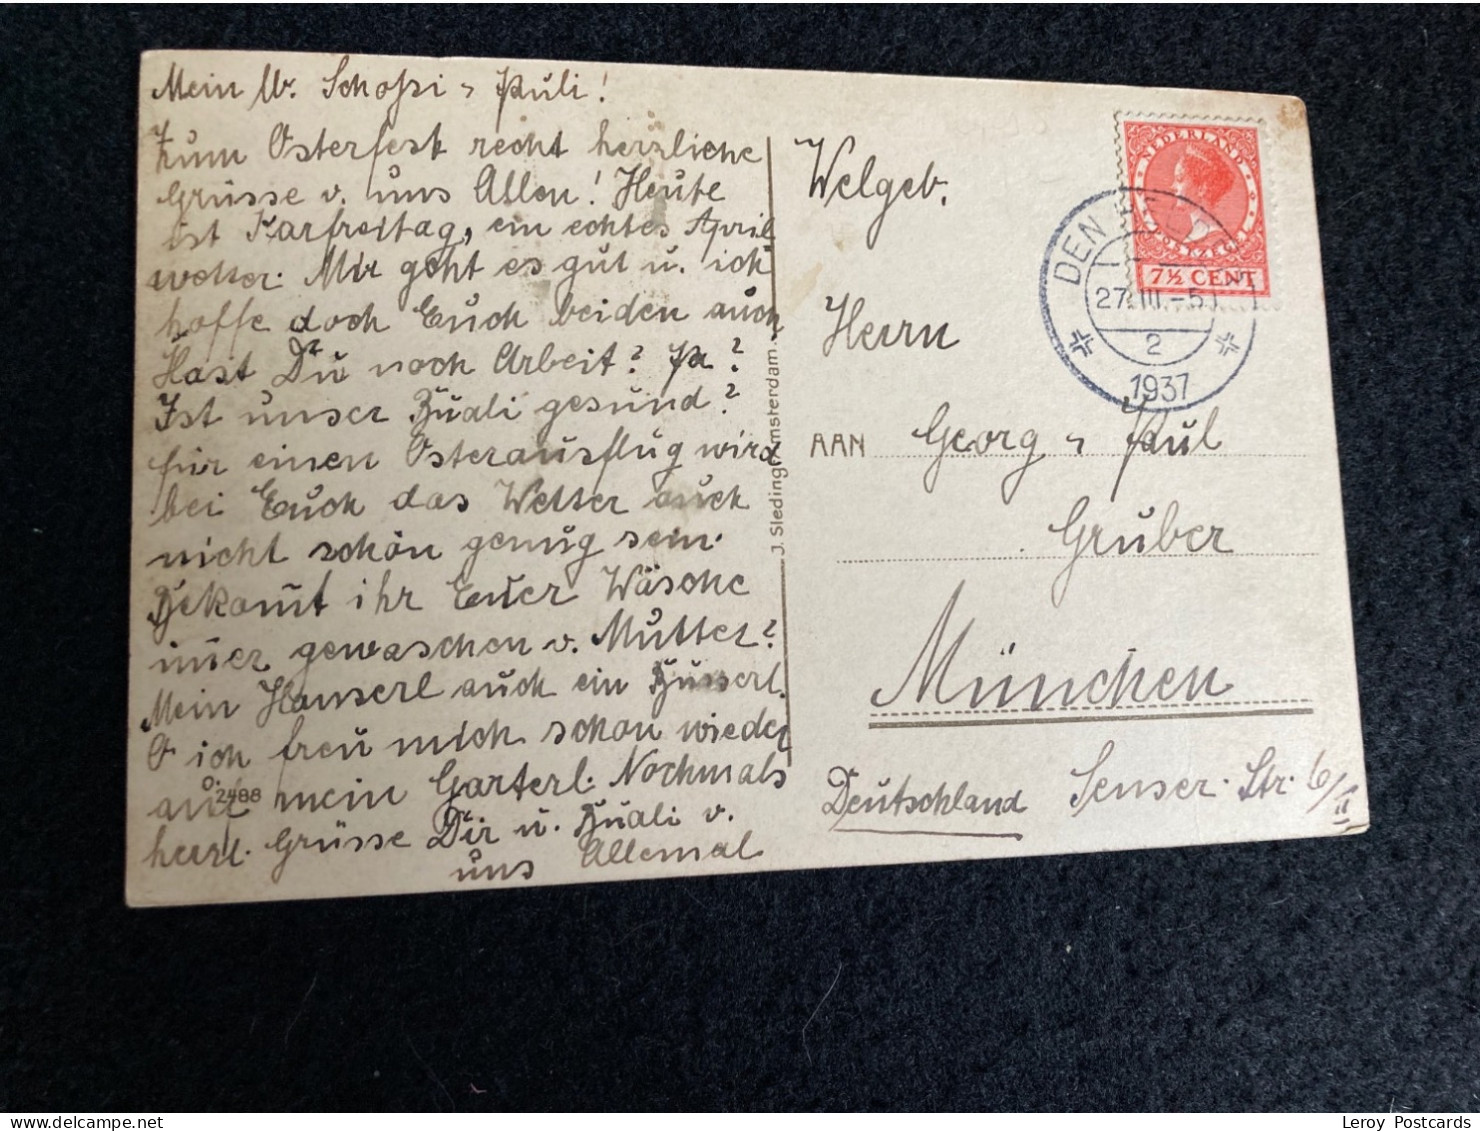 Mein lb. Schofsi u. Puli!
Zum Osterfest recht herzliche
Grüsse v. uns Allen! Heute
ist Karfreitag, ein echtes April
wetter. Mir geht es gut u. ich
hoffe doch Euch beiden auch
Hast Du noch Arbeit? Ja?
Ist unser Buali gesund?
für einen Osterausflug wird
bei Euch das Wetter auch
nicht schön genug sein.
Bekomt ihr Euer Wäsche
imer gewaschen v. Mutter?
Mein Hanserl auch ein Busserl.
O ich freu mich schon wieder
auf mein Garterl. Nochmals
herzl. Grüsse Dir u. Buali v.
uns Allemal
2488
J. Sleding, Amsterdam.
NEDERLAND
POSTZEGEL
7½ CENT
DEN
27.III.-5
2
1937
Welgeb.
Herrn
AAN Georg u. Pul
Gruber
München
Deutschland Senser. Str. 6/II
Leroy Postcards